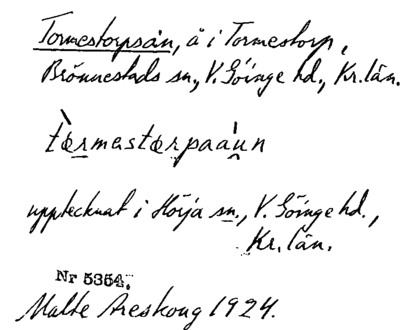 Tormestorpsån, å i Tormestorp,
Brönnestads sn., V. Göinge hd., Kr. län.
tòrmestorpaàun
upptecknat i Hörja sn., V. Göinge hd.,
Kr. län.
Nr 5354.
Malte Areskoug 1924.